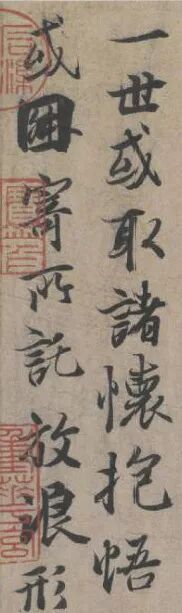 一世或取諸懷抱悟
或因寄所託放浪形